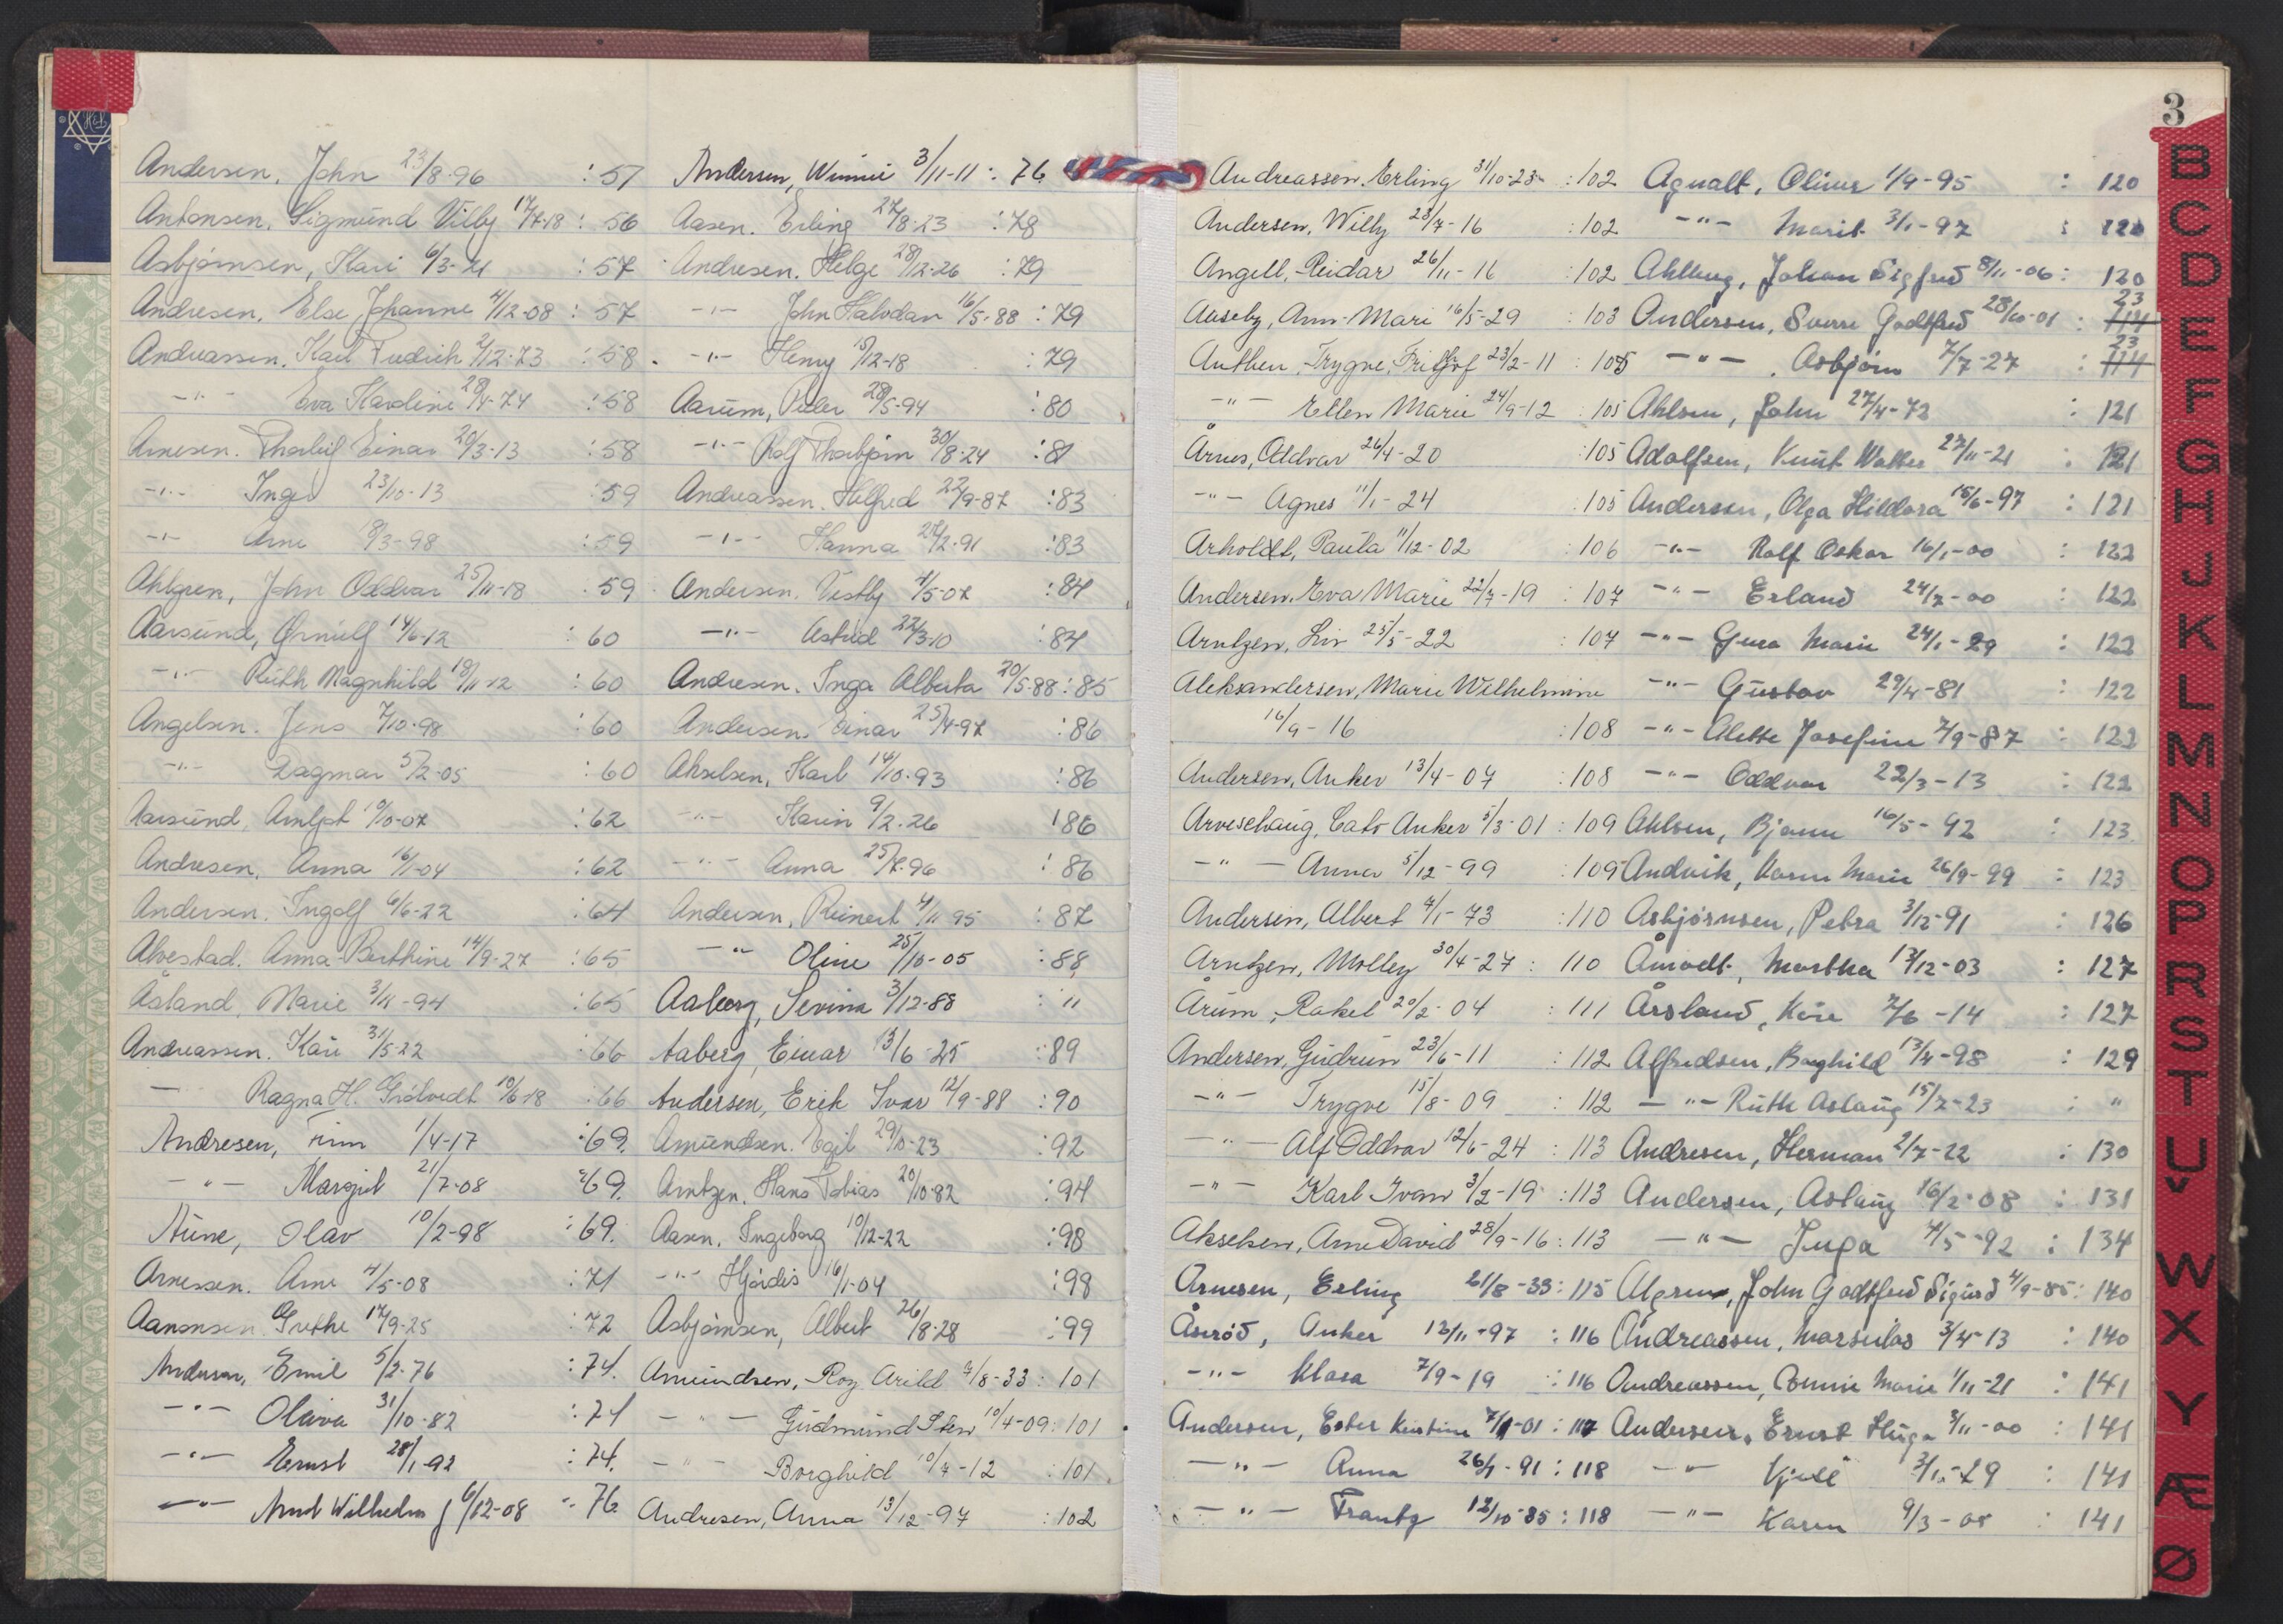 Andersen, John 23/8-96 : 57
Antonsen, Sigmund Vilby 17/7-18 : 56
Asbjørnsen, Kari 6/3-21 : 57
Andresen, Else Johanne 4/12-08 : 57
Andreassen, Karl Fredrich 2/12-73 : 58
-"- Eva Karoline 28/8-74 : 58
Arnesen, Thorleif Einar 20/3-13 : 58
-"- Inger 23/10-13 : 59
-"- Arne 18/3-98 : 59
Ahlgren, John Oddvar 25/11-18 : 59
Aarsund, Ørnulf 14/6-12 : 60
-"- Ruth Magnhild 18/11-12 : 60
Angelsen, Jens 7/10-98 : 60
-"- Dagmar 5/2-05 : 60
Aarsund, Arnljot 19/10-07 : 62
Andresen, Anna 16/1-04 : 62
Andersen, Ingolf 6/6-22 : 64
Alvestad, Anna-Berthine 14/9-27 : 65
Åsland, Marie 3/11-94 : 65
Andreassen, Kari 31/5-22 : 66
— Ragna H. Grøtvedt 10/6-18 : 66
Andresen, Finn 1/4-17 : 69.
-"- Margit 21/7-08 : 69.
Aune, Olav 10/2-98 : 69.
Arnessen, Arne 4/5-08 : 71
Aanonsen, Grethe 17/9-25 : 72
Andersen, Emil 5/2-76 : 74.
-"- Olava 31/10-82 : 74
-"- Ernst 28/1-92 : 74.
-"- Arnt Wilhelm J 6/12-08 : 76.
Andersen, Winnie 3/11-11 : 76.
Aasen, Erling 27/8-23 : 78
Andresen, Helge 28/12-26 : 79
-"- John Halvdan 16/5-88 : 79
-"- Henry 15/12-18 : 79
Aarum, Peder 28/5-94 : 80
-"- Rolf Thorbjørn 30/8-24 : 81
Andreassen, Hilfred 22/9-87 : 83
-"- Hanna 27/2-91 : 83
Andersen, Vestby 4/5-07 : 84
-"- Astrid 22/3-10 : 84
Andresen, Inga Alberta 20/5-88 : 85
Andersen, Einar 25/4-97 : 86
Akselsen, Karl 14/10-93 : 86
-"- Karin 9/2-26 : 86
-"- Anna 25/7-96 : 86
Andersen, Reinert 4/11 95 : 87
-"- Oline 25/10-05 : 88
Aaberg, Sevina 3/12-88 : "
Aaberg, Einar 13/6-25 : 89
Andersen, Erik Ivar 12/9-88 : 90
Amundsen, Egil 29/10-23 : 92
Arntzen, Hans Tobias 20/10-82 : 94
Aasen, Ingeborg 10/12-22 : 98
-"- Hjørdis 16/1-04 : 98
Asbjørnsen, Albert 26/8-28 : 99
Amundsen, Roy Arild 7/8-33 : 101
-"- Gudmund Sten 10/4-09 : 101
-"- Borghild 10/7-12 : 101
Andresen, Anna 13/12-97 : 102
3
Andreassen, Erling 31/10-23 : 102
Andersen, Willy 28/7-16 : 102
Angell, Reidar 26/11-16 : 102
Aaseby, Ann-Mari 16/5-29 : 103
Anthen, Trygve, Fritjof 23/2-11 : 105
-"- Ellen Marie 24/9-12 : 105
Årnes, Oddvar 26/4-20 : 105
-"- Agnes 11/1-24 : 105
Arholdt, Paula 11/12-02 : 106
Andersen, Eva Marie 22/7-19 : 107
Arntzen, Liv 25/5-22 : 107
Aleksandersen, Marie Wilhelmine
16/9-16 : 108
Andersen, Anker 13/4-07 : 108
Arveschaug, Cato Anker 5/3-01 : 109
-"- Anna 5/12-99 : 109
Andersen, Albert 4/1-73 : 110
Arntzen, Molley 30/4-27 : 110
Årum, Rakel 20/2-04 : 111
Andersen, Gudrun 23/6-11 : 112
-"- Trygve 15/8-09 : 112
-"- Alf Oddvar 12/6-24 : 113
-"- Karl Ivan 3/2-19 : 113
Akselsen, Arne David 28/9-16 : 113
Arnesen, Erling 21/8-33 : 115
Åserød, Anker 12/11-97 : 116
-"- Klara 7/9-19 : 116
Andersen, Ester Kristine 7/1-01 : 117
-"- Anna 26/1-91 : 118
-"- Frantz 12/10-85 : 118
Agnalt, Oliver 1/9-95 : 120
-"- Marit 3/1-97 : 120
Ahlberg, Johan Sigfred 8/11-06 : 120
Andersen, Sverre Godtfred 28/10-01 : 114 23
-"- Asbjørn 7/7-27 : 114 23
Ahlsen, John 27/4-72 : 121
Adolfsen, Knut Walter 27/11-21 : 121
Andersen, Olga Hildora 15/6-97 : 121
-"- Rolf Oskar 16/1-00 : 122
-"- Erland 24/7-00 : 122
-"- Gura Marie 24/1-29 : 122
-"- Gustav 29/4-81 : 122
-"- Alette Josefine 7/9-87 : 122
-"- Oddvar 22/3-13 : 122
Ahlsen, Bjarne 16/5-92 : 123
Andvik, Karen Marie 26/9-99 : 123
Asbjørnsen, Petra 3/12-91 : 126
Åmodt, Martha 13/12-03 : 127
Årsland, Kåre 7/6-14 : 127
Alfredsen, Borghild 13/4-98 : 129
-"- Ruth Aslaug 15/7-23 : "
Andresen, Herman 2/7-22 : 130
Andersen, Aslaug 16/2-08 : 131
-"- Inga 4/5-92 : 134
Algren, John Godtfred Sigurd 4/9-85 : 140
Andreassen, Marselius 3/4-13 : 140
Andreassen, Connie Marie 1/11-21 : 141
Andersen, Ernst Hugo 3/11-00 : 141
-"- Kjell 29 : 141
-"- Karen 9/3-08 : 141
B
C
D
E
F
G
H
I
J
K
L
M
N
O
P
R
S
T
U
V
W
X
Y
Æ
Ø